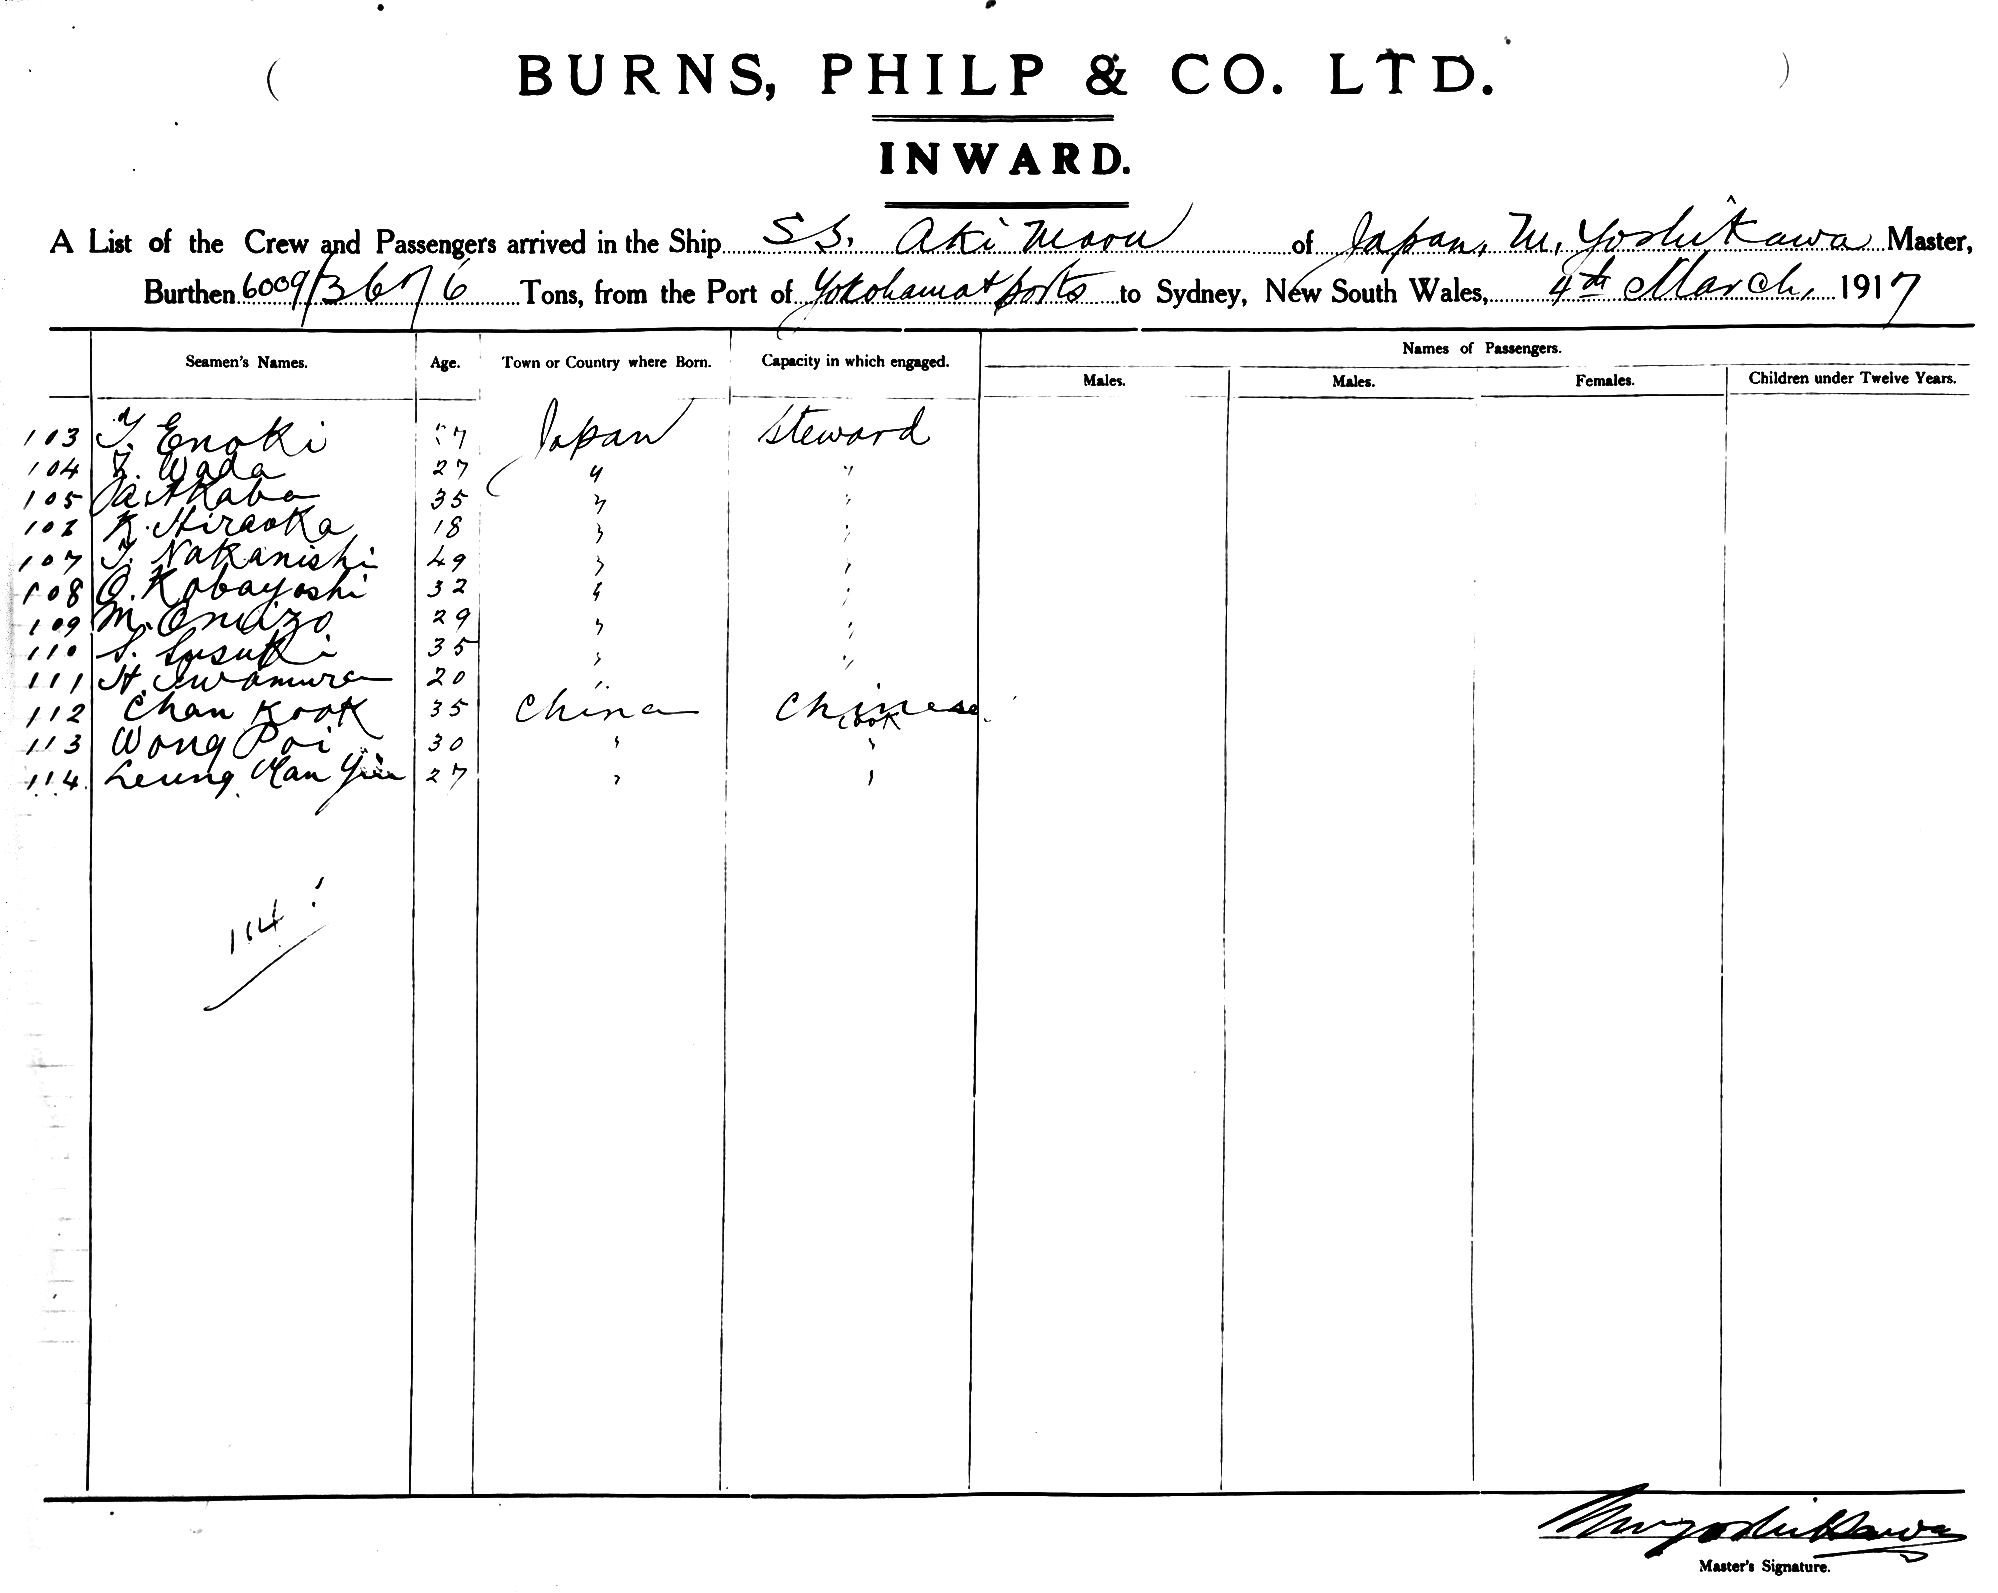 BURNS, PHILP & CO. LTD.
INWARD.
A List of the Crew and Passengers arrived in the Ship SS. Aki Maru of Japan, M. Yoshikawa Master,
Burthen 6009/3676 Tons, from the Port of Yokohama & ports to Sydney, New South Wales, 4th March, 1917
Names of Passengers.
Seamen's Names. Age. Town or Country where Born. Capacity in which engaged. Males. Males. Females. Children under Twelve Years.
103 T. Enoki Japan Steward
104 Wada 27 " "
105 Akaba 35 " "
106 K. Hiraoka 18 " "
107 T. Nakanishi 49 " "
108 O. Kobayashi 32 " "
109 M. Omizo 29 " "
110 S. Susuki 35 " "
111 H. Iwamura 20 "
112 Chan Kook 35 China Chinese
cook
113 Wong Poi 30 " "
114 Leung Man 27 " "
114
M Yoshikawa
Master's Signature.